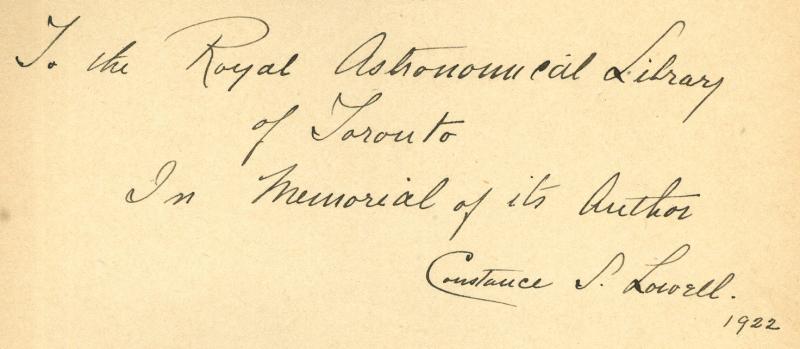 To the Royal Astronomical Library
of Toronto
In Memorial of its Author
Constance S. Lowell.
1922